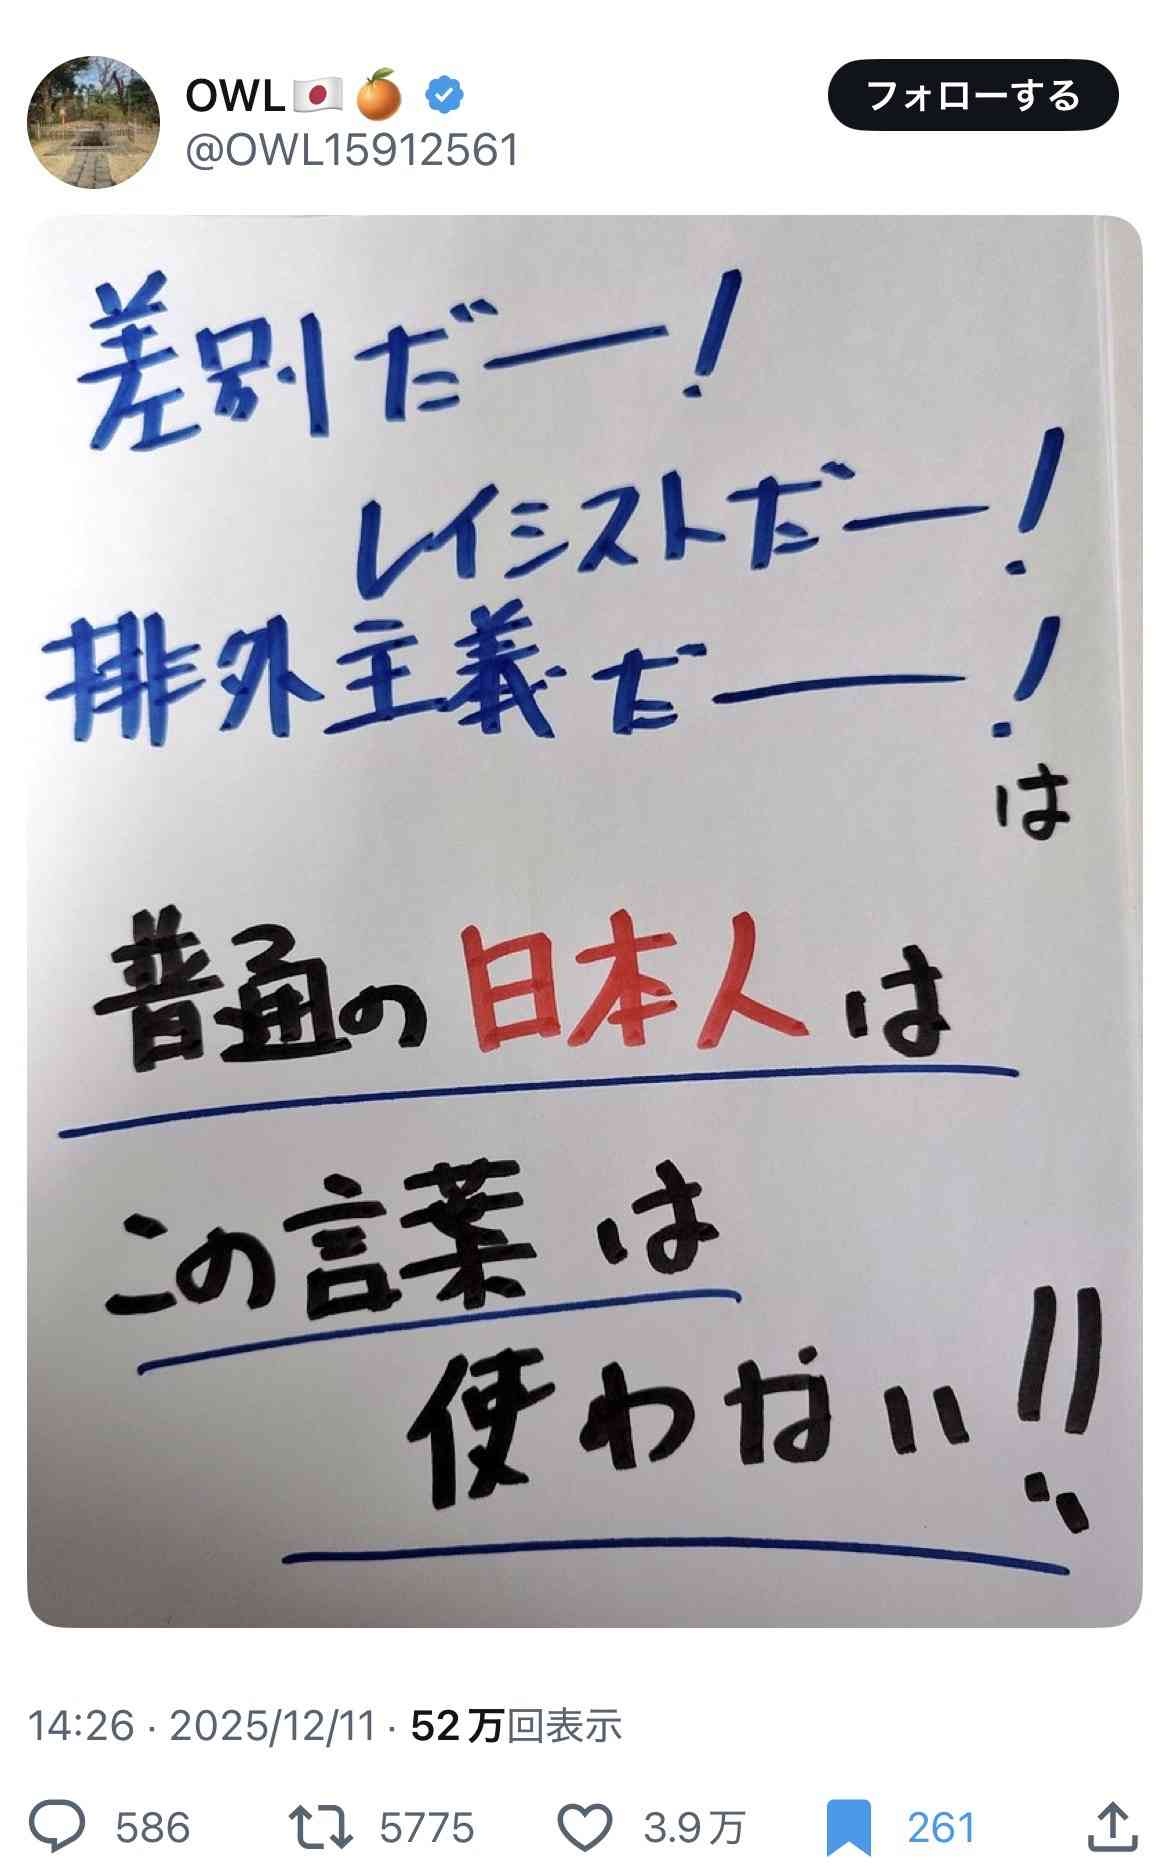 OWL🇯🇵🍊
@OWL15912561
フォローする
差別だー!
レイシストだー!
排外主義だー!
は
普通の日本人は
この言葉は
使わない!!
14:26 · 2025/12/11 · 52万回表示
586 5775 3.9万 261